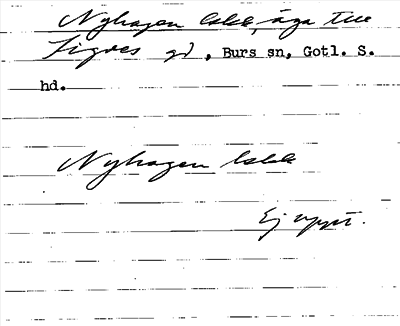 Nyhagen lokk, äga till
Sigves gd, Burs sn, Gotl. S.
hd.
Nyhagen lokk
Ej uppt.